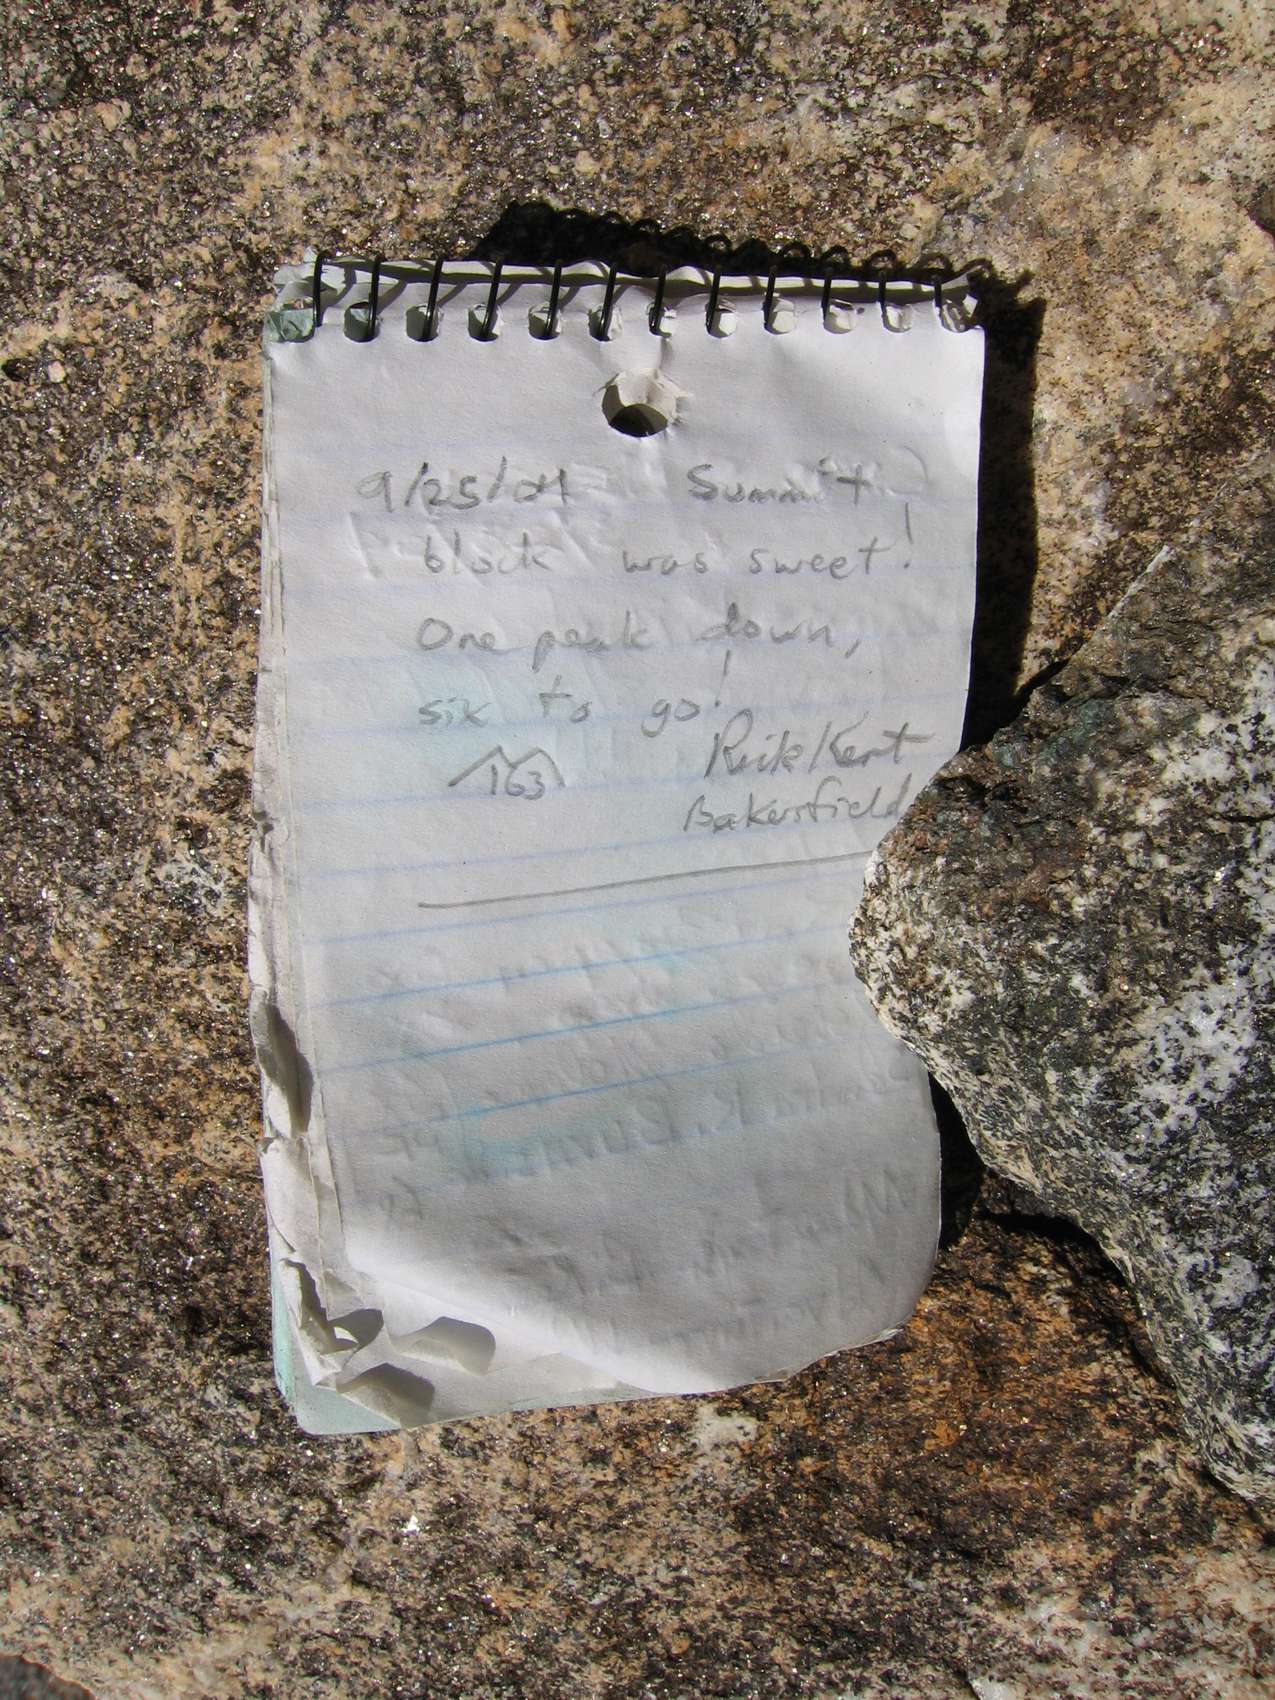 9/25/04 Summit
block was sweet!
One peak down,
six to go!
163
Rick Kent
Bakersfield